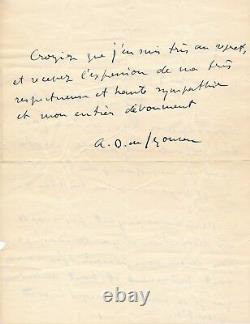 Croyez que j'en suis très au regret,
et recevez l'expression de ma très
respectueuse et haute sympathie
et mon entier dévouement
A. D. de Segonzac
ebay